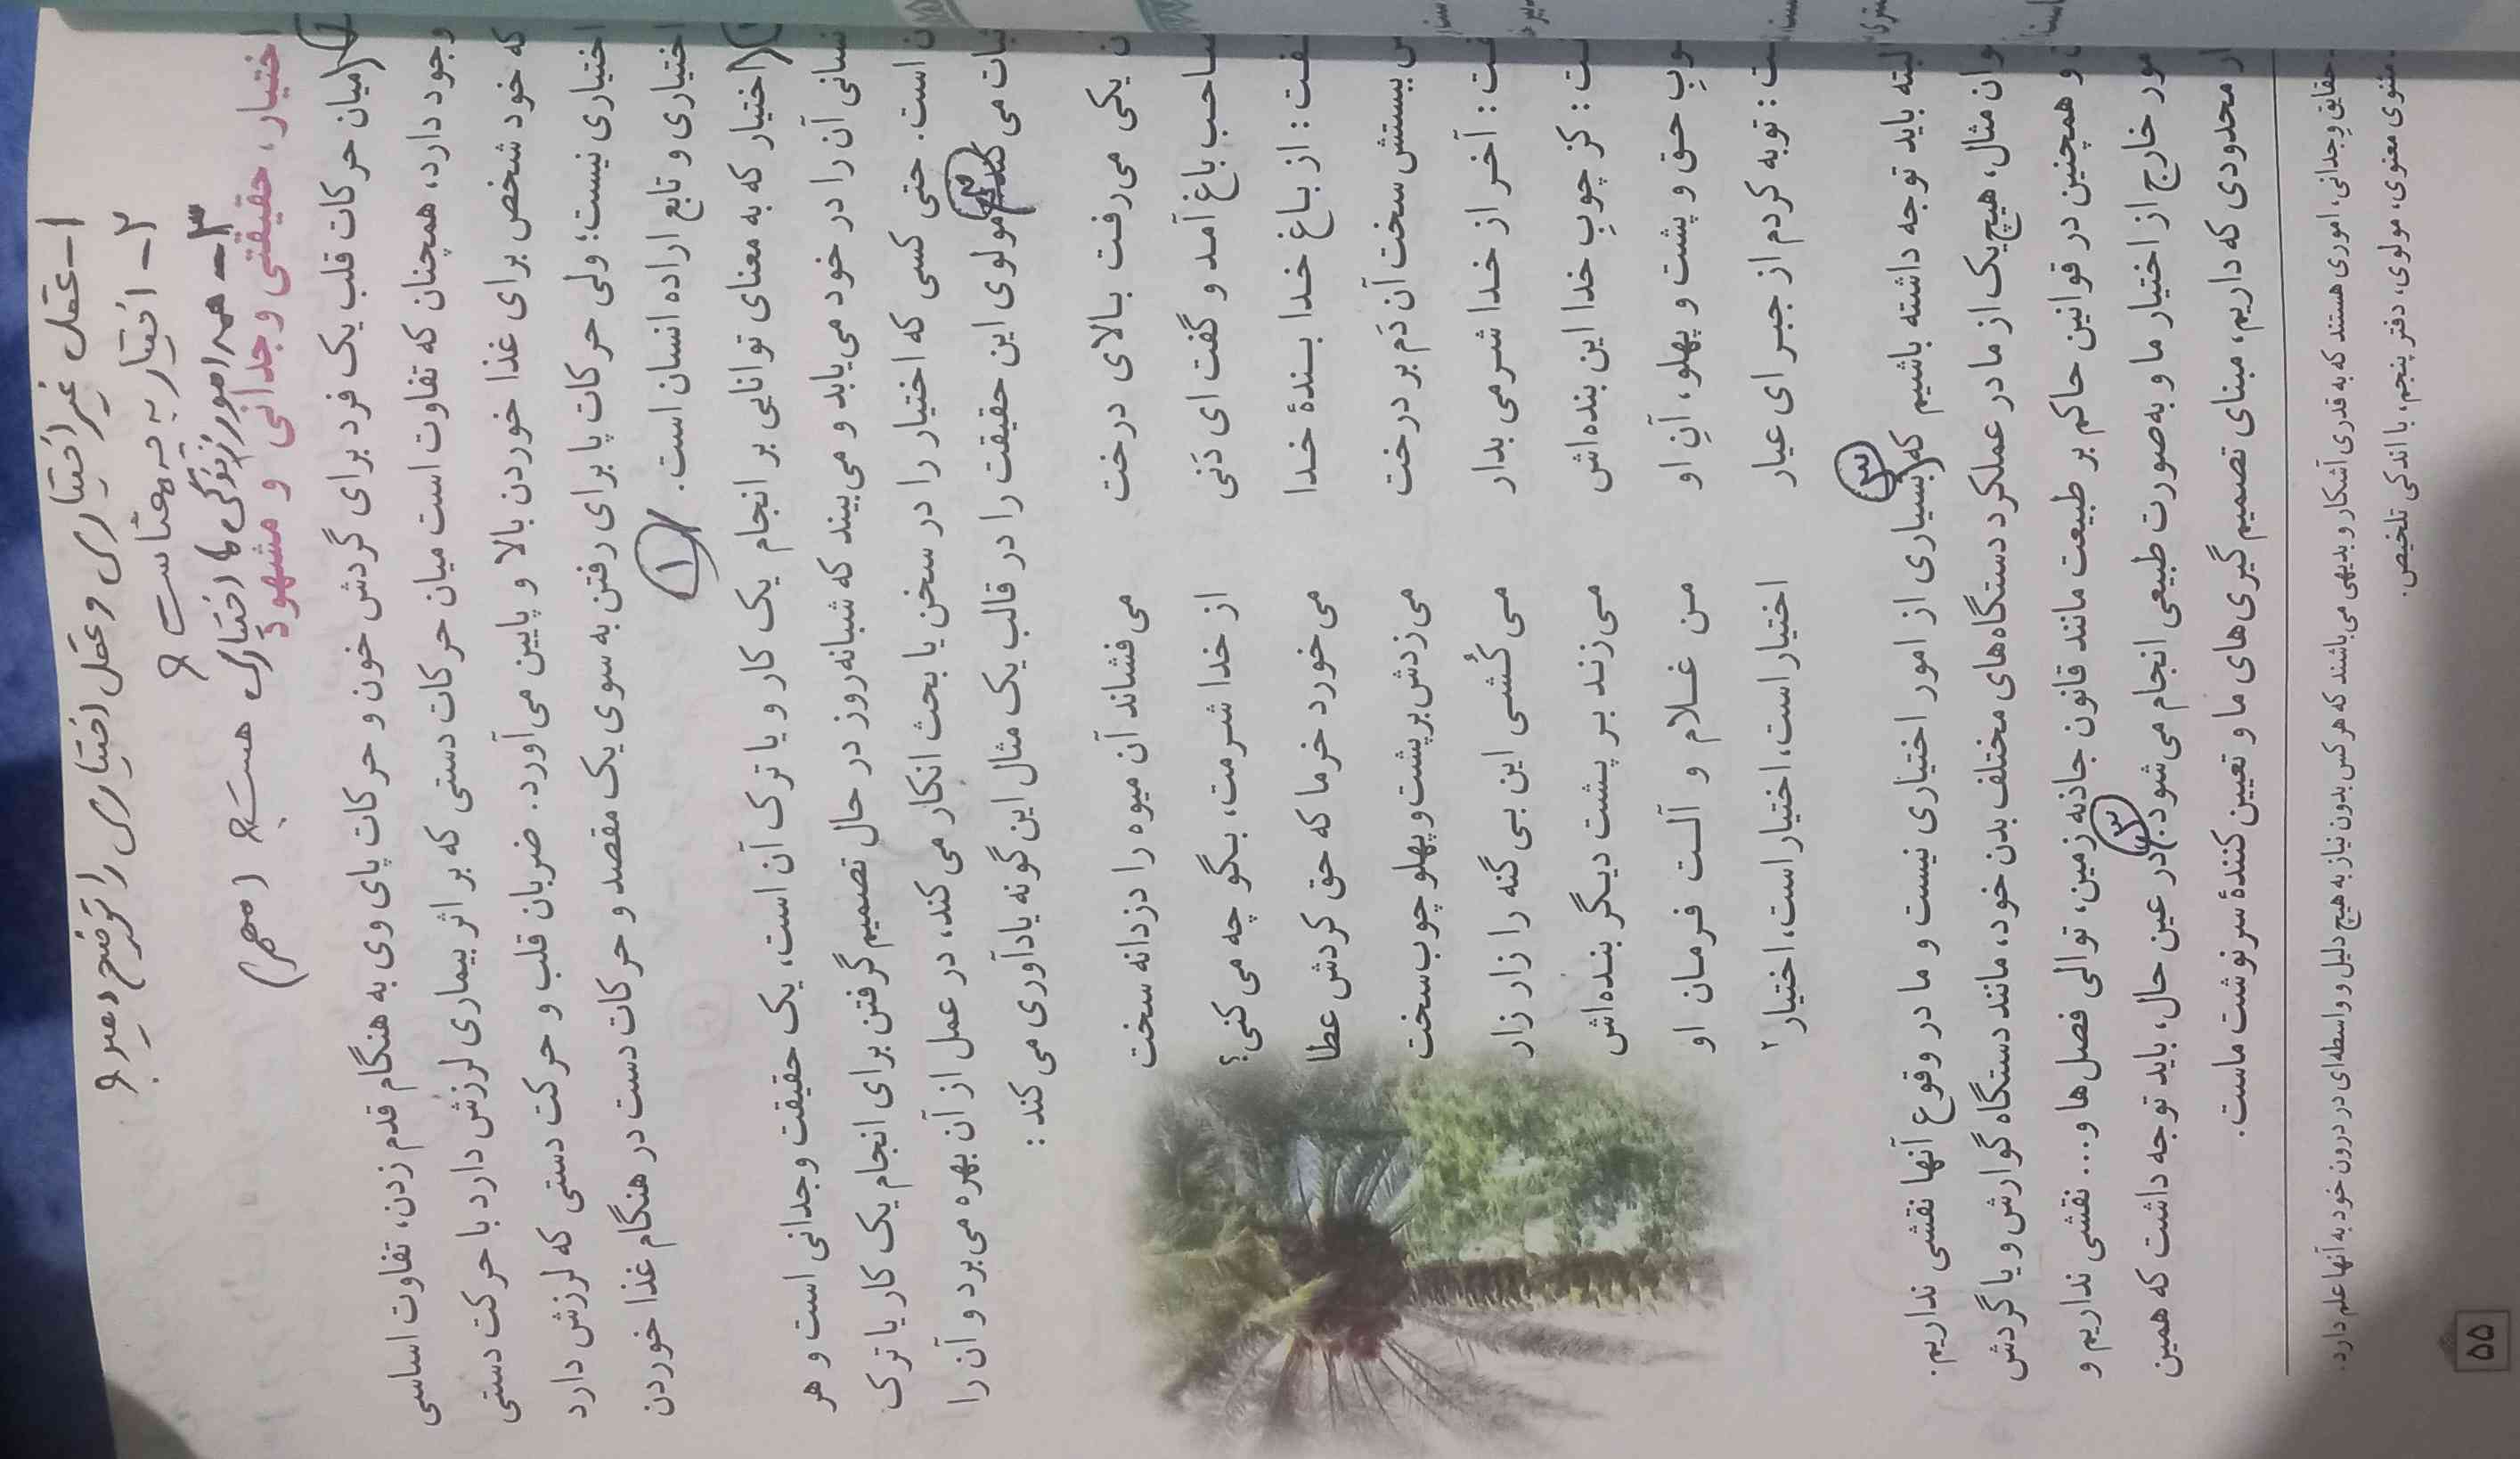 ۱- عمل غیر اختیاری و عمل اختیاری را توضیح دهید؟
۲- اختیار به چه معناست؟
۳- همه امور زندگی ما اختیاری هست؟ (مهم)
اختیار، حقیقتی وجدانی و مشهود
۱ (میان حرکات قلب یک فرد برای گردش خون و حرکات پای وی به هنگام قدم زدن، تفاوت اساسی
وجود دارد، همچنان که تفاوت است میان حرکات دستی که بر اثر بیماری لرزش دارد با حرکت دستی
که خود شخص برای غذا خوردن بالا و پایین می‌آورد. ضربان قلب و حرکت دستی که لرزش دارد
اختیاری نیست؛ ولی حرکات پا برای رفتن به سوی یک مقصد و حرکات دست در هنگام غذا خوردن
اختیاری و تابع اراده انسان است. ۱
(اختیار که به معنای توانایی بر انجام یک کار و یا ترک آن است، یک حقیقت وجدانی است و هر
انسانی آن را در خود می‌یابد و می‌بیند که شبانه‌روز در حال تصمیم گرفتن برای انجام یک کار یا ترک
است. حتی کسی که اختیار را در سخن یا بحث انکار می‌کند، در عمل از آن بهره می‌برد و آن را
می‌کند. مولوی این حقیقت را در قالب یک مثال این گونه یادآوری می‌کند:
یکی می‌رفت بالای درخت می‌فشاند آن میوه را دزدانه سخت
صاحب باغ آمد و گفت ای دَنی از خدا شرمت، بگو چه می‌کنی؟
گفت: از باغ خدا بندهٔ خدا می‌خورد خرما که حق کردش عطا
ببستش سخت آن دَم بر درخت می‌زدش بر پشت و پهلو چوب سخت
گفت: آخر از خدا شرمی بدار می‌کُشی این بی گنه را زار زار
گفت: کز چوبِ خدا این بنده‌اش می‌زند بر پشت دیگر بنده‌اش
چوبِ حق و پشت و پهلو، آنِ او من غلام و آلت فرمان او
گفت: توبه کردم از جبر ای عیار اختیار است، اختیار است، اختیار۲
البته باید توجه داشته باشیم که ۳ (بسیاری از امور اختیاری نیست و ما در وقوع آنها نقشی نداریم.
مثال، هیچ یک از ما در عملکرد دستگاه‌های مختلف بدن خود، مانند دستگاه گوارش و یا گردش
و همچنین در قوانین حاکم بر طبیعت مانند قانون جاذبه زمین، توالی فصل‌ها و... نقشی نداریم و
امور خارج از اختیار ما و به‌صورت طبیعی انجام می‌شود.) ۳ در عین حال، باید توجه داشت که همین
محدودی که داریم، مبنای تصمیم گیری‌های ما و تعیین کنندهٔ سرنوشت ماست.
حقایق وجدانی، اموری هستند که به قدری آشکار و بدیهی می‌باشند که هر کس بدون نیاز به هیچ دلیل و واسطه‌ای در درون خود به آنها علم دارد.
مثنوی معنوی، مولوی، دفتر پنجم، با اندکی تلخیص.
۵۵